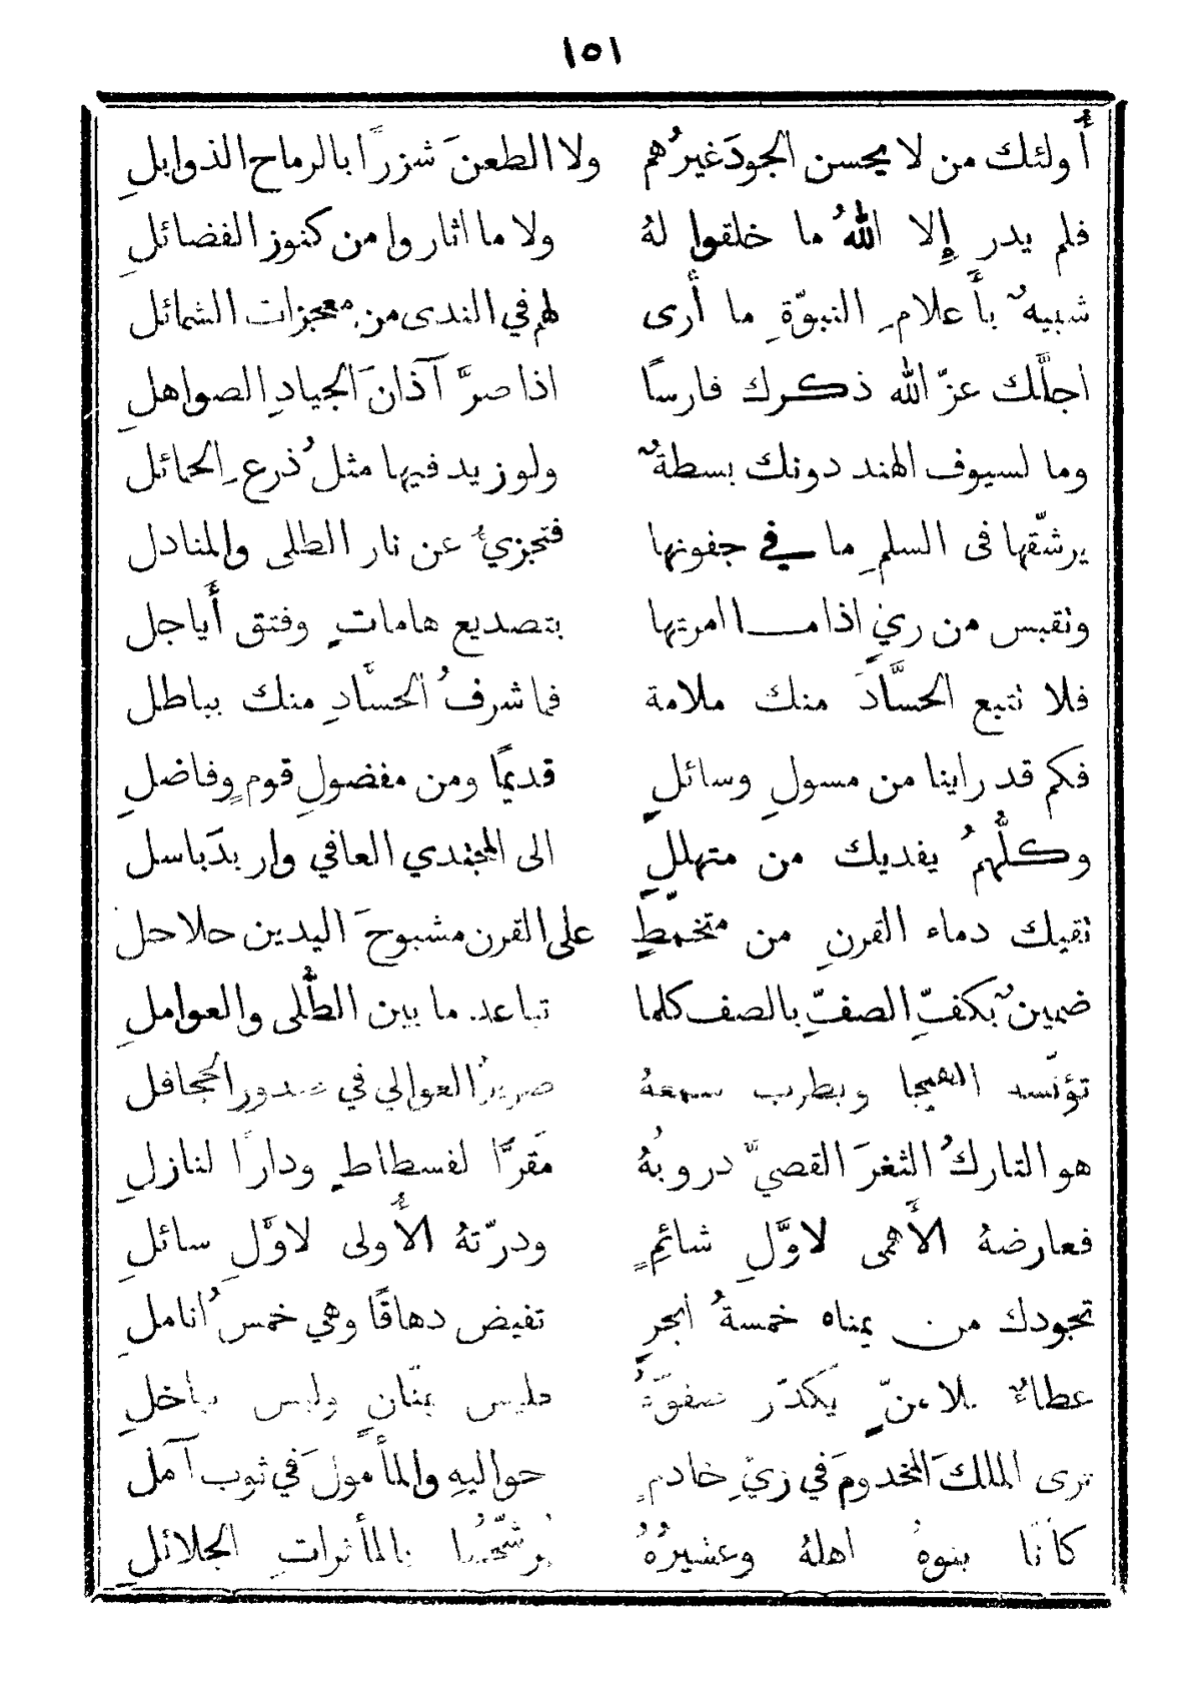 ١٥١
أُولئك من لا يحسن الجودَ غيرُهم ولا الطعنَ شزرًا بالرماح الذوابلِ
فلم يدر إِلا اللهُ ما خلقوا لهُ ولا ما اثاروا من كنوز الفضائلِ
شبيهٌ بأَعلامِ النبوّةِ ما أَرى لهم في الندى من معجزات الشمائل
اجلَّك عزّ الله ذكرك فارسًا اذا صرَّ آذانَ الجيادِ الصواهلِ
وما لسيوف الهند دونك بسطةٌ ولو زيد فيها مثلُ ذرعِ الحمائل
يرشّقها فى السلمِ ما في جفونها فتجزيُ عن نار الطلى والمنادل
وتقبس من ريٍ اذا ما امرتها بتصديع هاماتٍ وفتق أَياجل
فلا تتبع الحسَّادَ منك ملامة فما شرفُ الحسَّادِ منك بباطل
فكم قد راينا من مسولٍ وسائلٍ قديمًا ومن مفضولِ قومٍ وفاضلِ
وكلُّهمُ يفديك من متهللٍ الى المجتدي العافي واربدَ باسل
تقيك دماء القرنِ من متخمطٍ على القرن مشبوحَ اليدين حلاحل
ضمينٌ بكفِّ الصفِّ بالصف كلما تباعد ما بين الطُّلى والعواملِ
تؤنّسه الهيجا ويطرب سمعهُ صريرُ العوالي في صدور الجحافل
هو التاركُ الثغرَ القصيَّ دروبُهُ مَقرًّا لفسطاطٍ ودارًا لنازلِ
فعارضهُ الأَهمى لاوَّلِ شائمٍ ودرّتهُ الأُولى لاوَّلِ سائلِ
تجودك من يمناه خمسةُ ابحرٍ تفيض دهاقًا وهي خمسُ اناملِ
عطاءٌ بلا منٍّ يكدّر صفوَهُ فليس بمنّانٍ وليس بباخلِ
ترى الملكَ المخدومَ في زيِّ خادمٍ حواليهِ والمأمولَ في ثوب آمل
كأنّا بنوهُ اهلهُ وعشيرُهُ يُرشّحنا بالمأثراتِ الجلائلِ